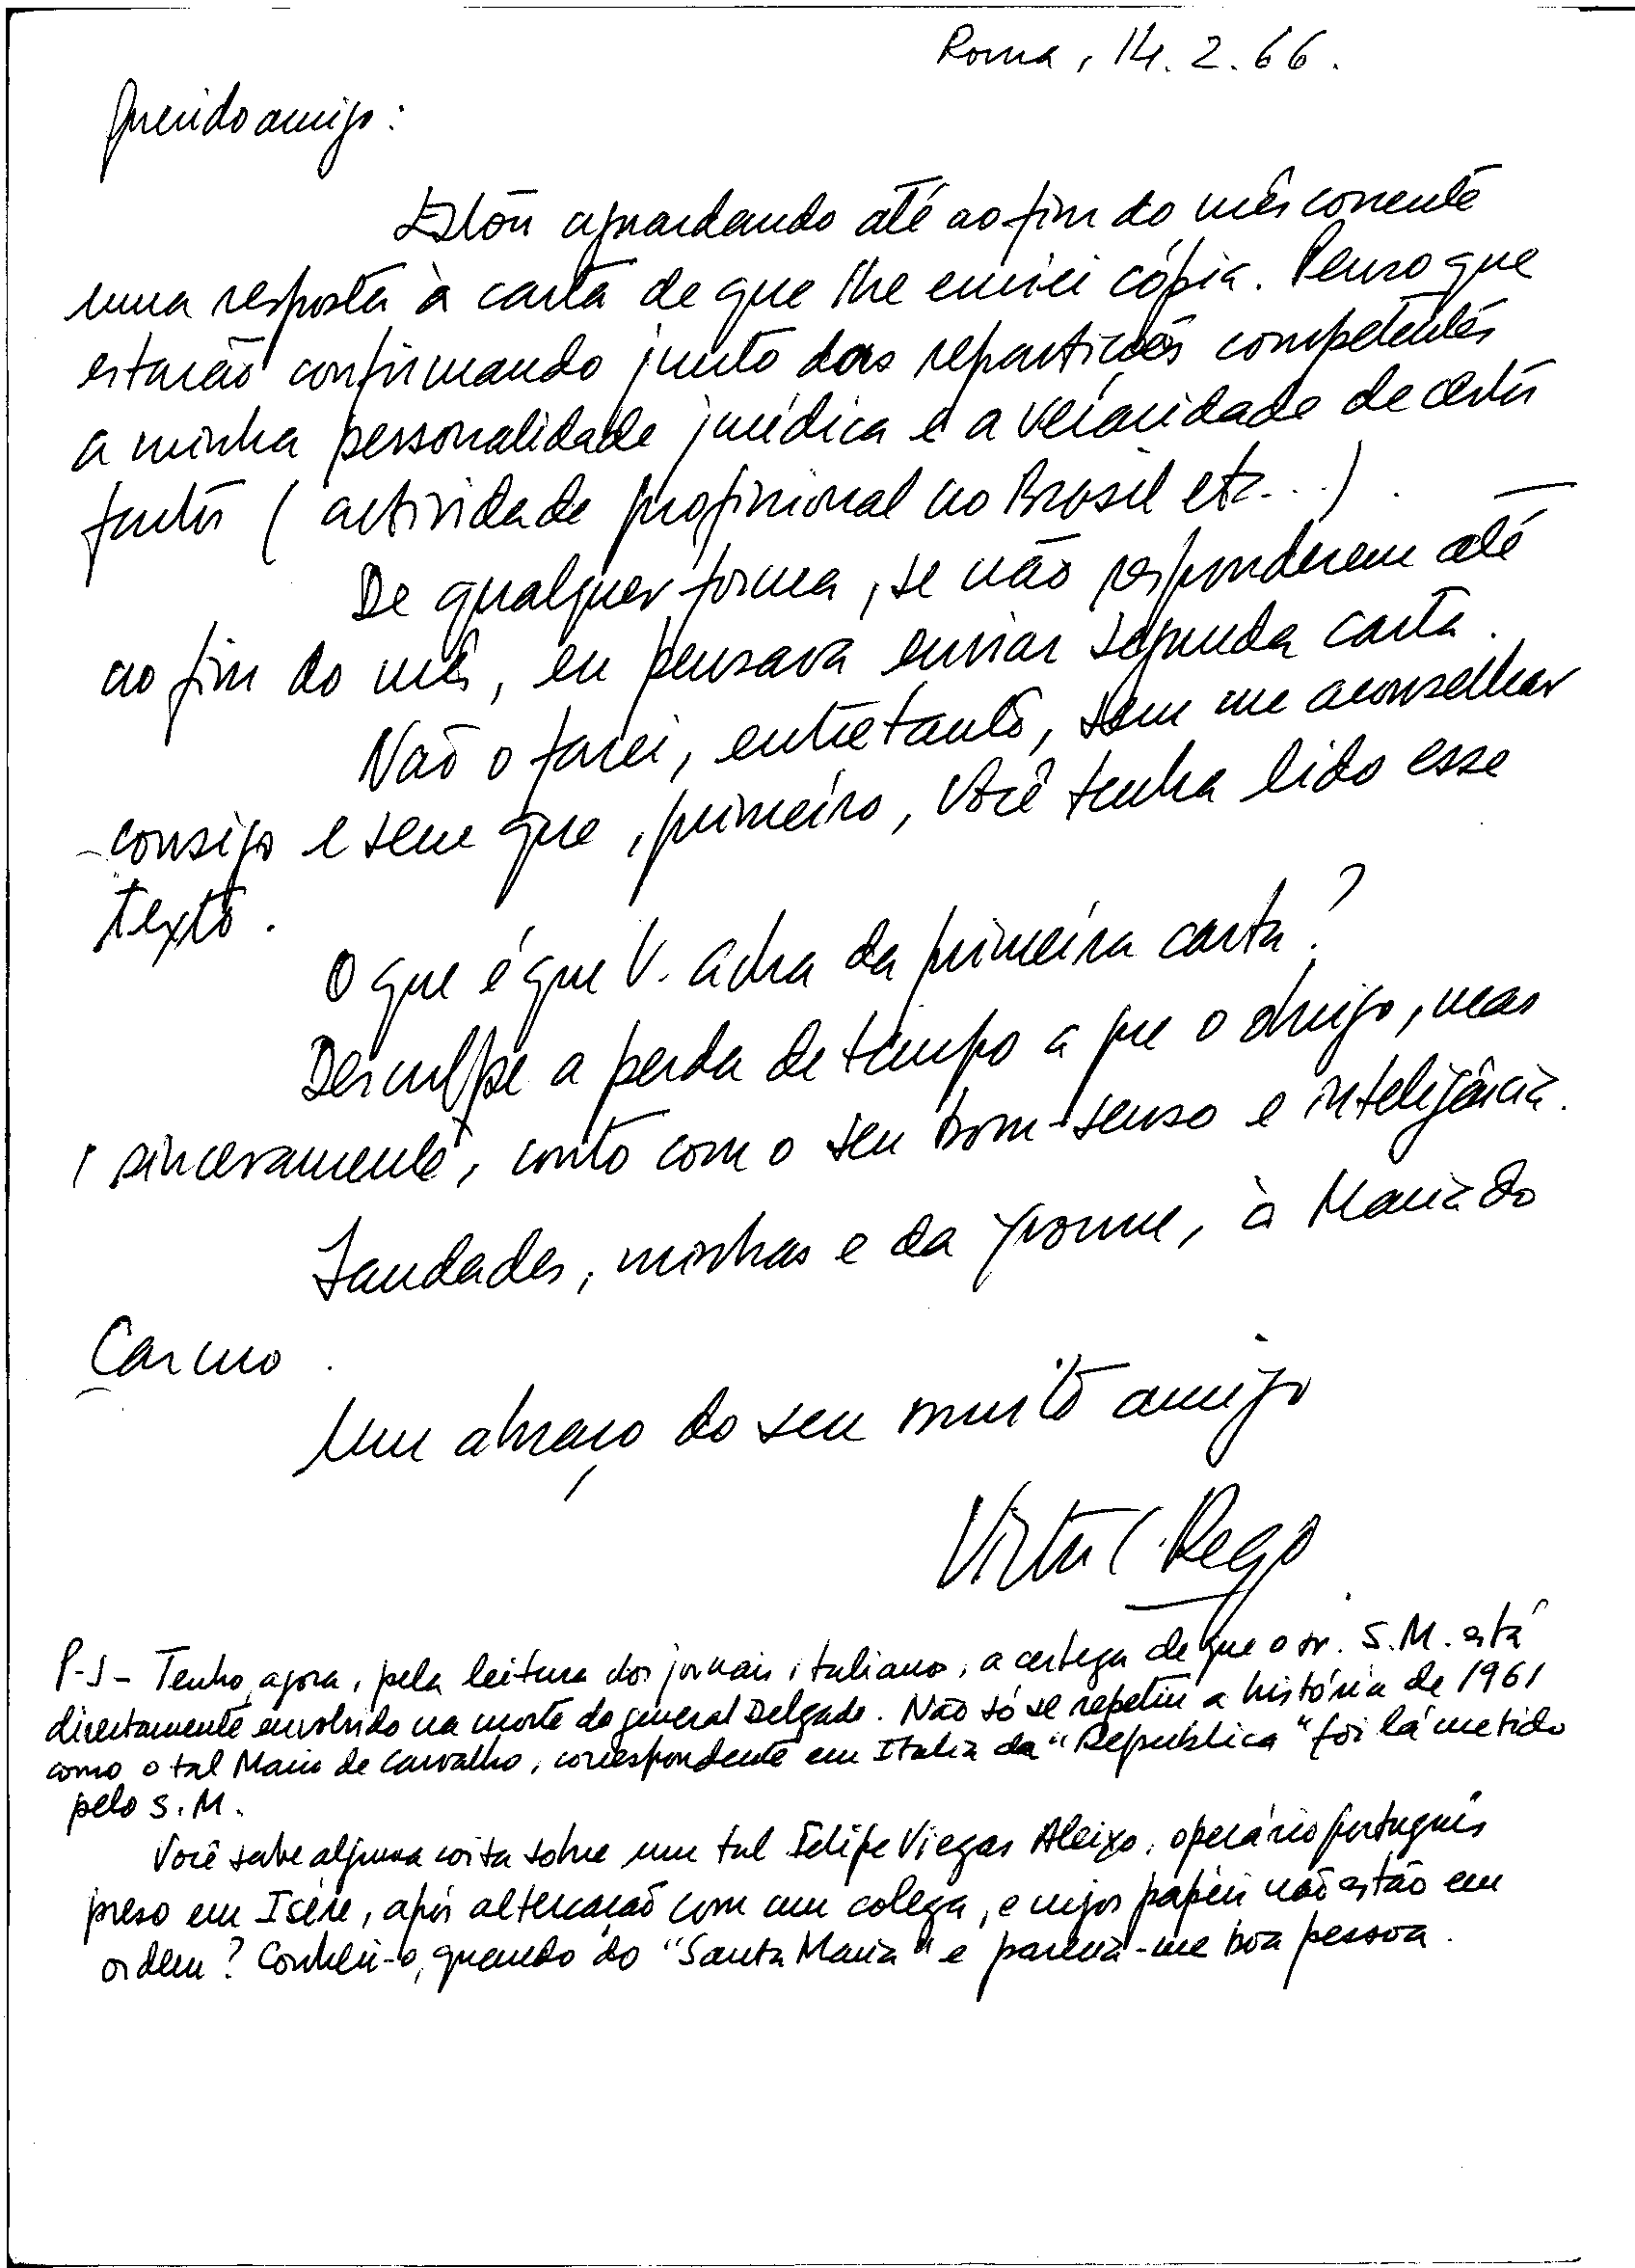 Roma, 14.2.66.
Querido amigo:
Estou aguardando até ao fim do mês corrente
uma resposta à carta de que lhe enviei cópia. Penso que
estarão confirmando junto das repartições competentes
a minha personalidade jurídica e a veracidade de certos
factos (actividade profissional no Brasil etc...).
De qualquer forma, se não responderem até
ao fim do mês, eu pensava enviar segunda carta.
Não o farei, entretanto, sem me aconselhar
consigo e sem que, primeiro, Você tenha lido esse
texto.
O que é que V. acha da primeira carta?
Desculpe a perda de tempo a que o obrigo, mas
, sinceramente, conto com o seu bom-senso e inteligência.
Saudades, minhas e da Yvonne, à Maria do
Carmo.
Um abraço do seu muito amigo
Victor C. Rego
P-S - Tenho, agora, pela leitura dos jornais italianos, a certeza de que o sr. S.M. está
directamente envolvido na morte do general Delgado. Não só se repetiu a história de 1961
como o tal Mario de Carvalho, correspondente em Italia da "Republica" foi lá metido
pelo S.M.
Você sabe alguma coisa sobre um tal Felipe Viegas Aleixo, operário português
preso em Isère, após altercação com um colega, e cujos papéis não estão em
ordem? Conheci-o, quando do "Santa Maria" e parecia-me boa pessoa.